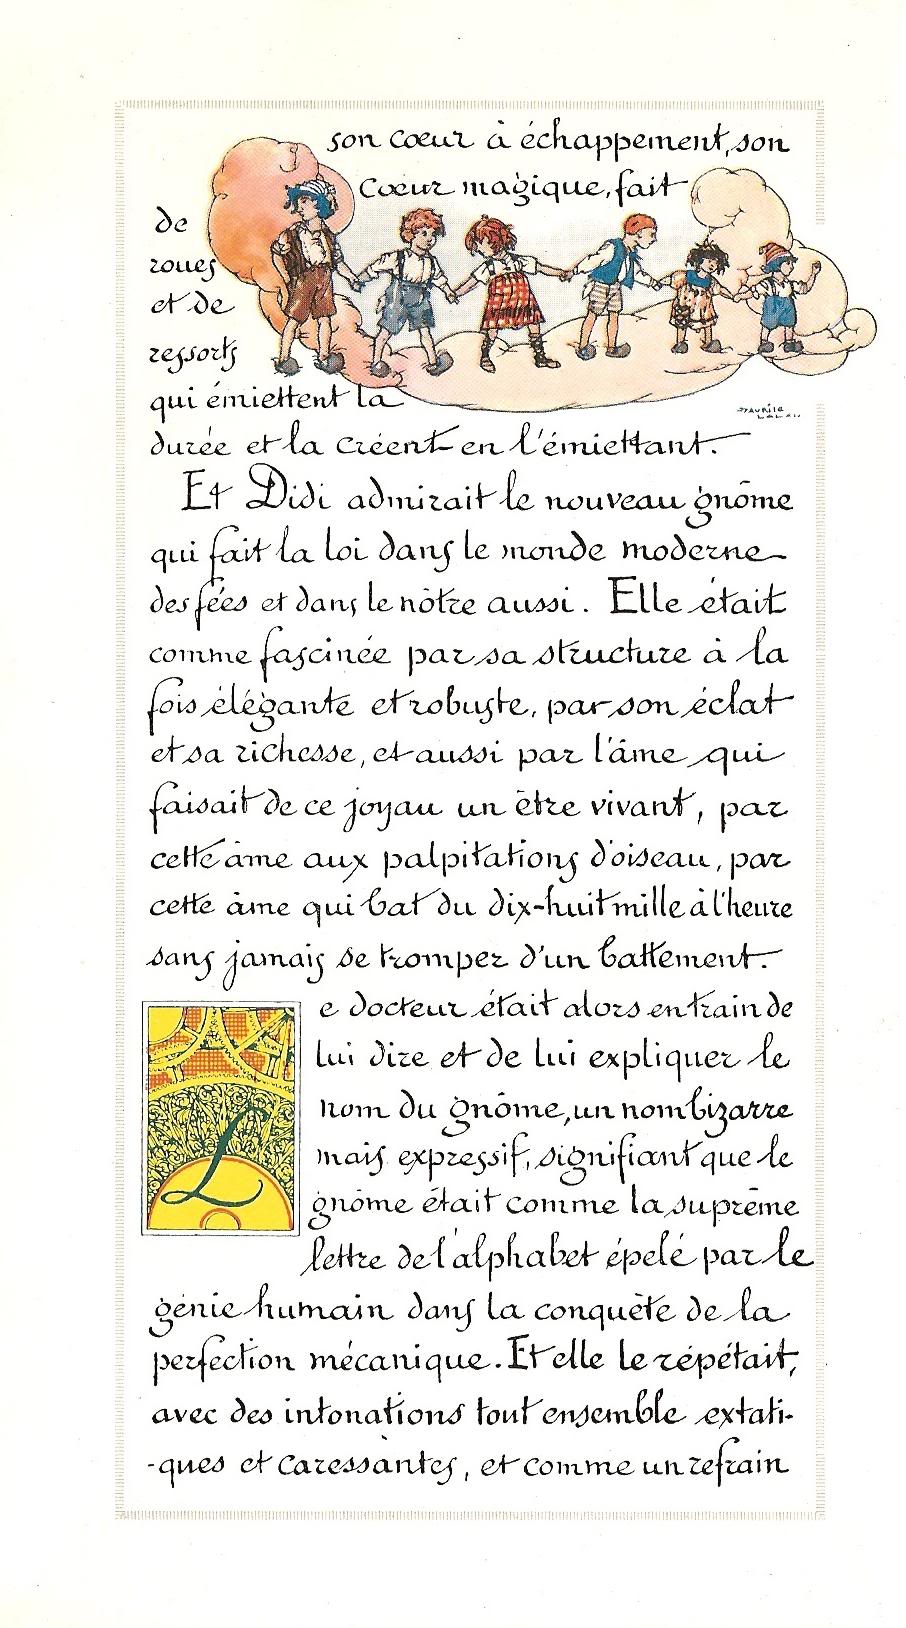 son cœur à échappement, son
cœur magique, fait
de
roues
et de
ressorts
qui émiettent la
durée et la créent en l'émiettant.
Et Didi admirait le nouveau gnôme
qui fait la loi dans le monde moderne
des fées et dans le nôtre aussi. Elle était
comme fascinée par sa structure à la
fois élégante et robuste, par son éclat
et sa richesse, et aussi par l'âme qui
faisait de ce joyau un être vivant, par
cette âme aux palpitations d'oiseau, par
cette âme qui bat du dix-huit mille à l'heure
sans jamais se tromper d'un battement.
Le docteur était alors en train de
lui dire et de lui expliquer le
nom du gnôme, un nom bizarre
mais expressif, signifiant que le
gnôme était comme la suprême
lettre de l'alphabet épelé par le
génie humain dans la conquête de la
perfection mécanique. Et elle le répétait,
avec des intonations tout ensemble extati-
-ques et caressantes, et comme un refrain